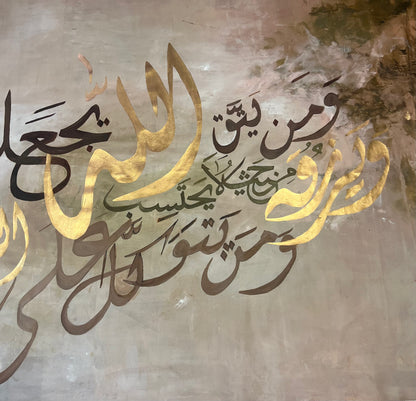 وَمَن يَتَّق الله يجعَل
ويرزقه مِن حَيثُ لَا يَحتَسِب
وَمَن يَتَوَكَّل عَلى